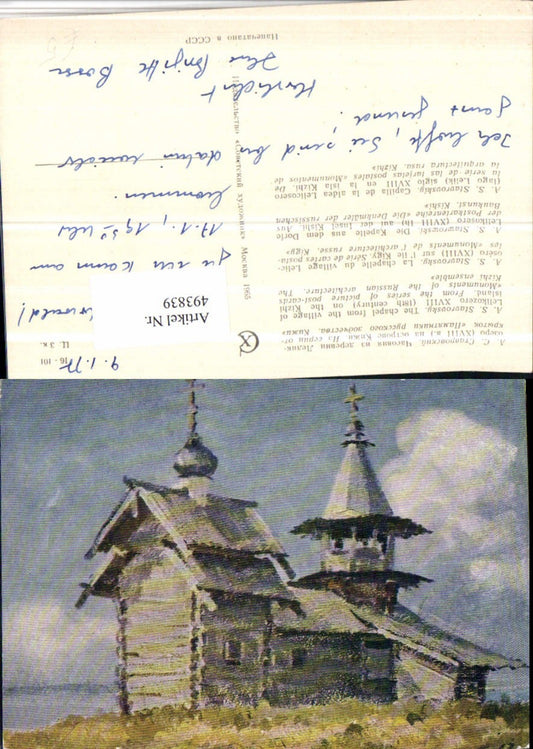 А. С. Ставровский. Часовня из деревни Леликозеро (XVIII в.) на острове Кижи. Из серии открыток «Памятники русского зодчества. Кижи»
A. S. Stavrovsky. The chapel from the village of
Lelikozero XVIII (18th) century) on the Kizhi
island. From the series of picture post-cards
«Monuments of the Russian architecture. The
Kizhi ensemble»
A. S. Stavrovsky. La chapelle du village Leli-
coséro (XVIII) sur l'île Kigy. Série de cartes posta-
les «Monuments de l'architecture russe. Kigy»
A. S. Stawrowski. Die Kapelle aus dem Dorfe
Lelikozero (XVIII Jh) auf der Insel Kishi. Aus
der Postkartenreihe «Die Denkmäler der russischen
Baukunst. Kishi»
A. S. Stavrovsky. Capilla de la aldea Lelicosero
(lago Leliki) siglo XVIII en la isla Kizhi. De
la serie de las tarjetas postales «Monumentos de
la arquitectura rusa. Kizhi»
Издательство «Советский художник» Москва 1965
Напечатано в СССР
16-101
Ц. 3 к.
Artikel Nr.
493839
9.1.77
kann am
17.1., 19 30 Uhr
kommen.
Ich hoffe, Sie sind bis dahin wieder
ganz gesund.
Herzlichst
Ihre Brigitte